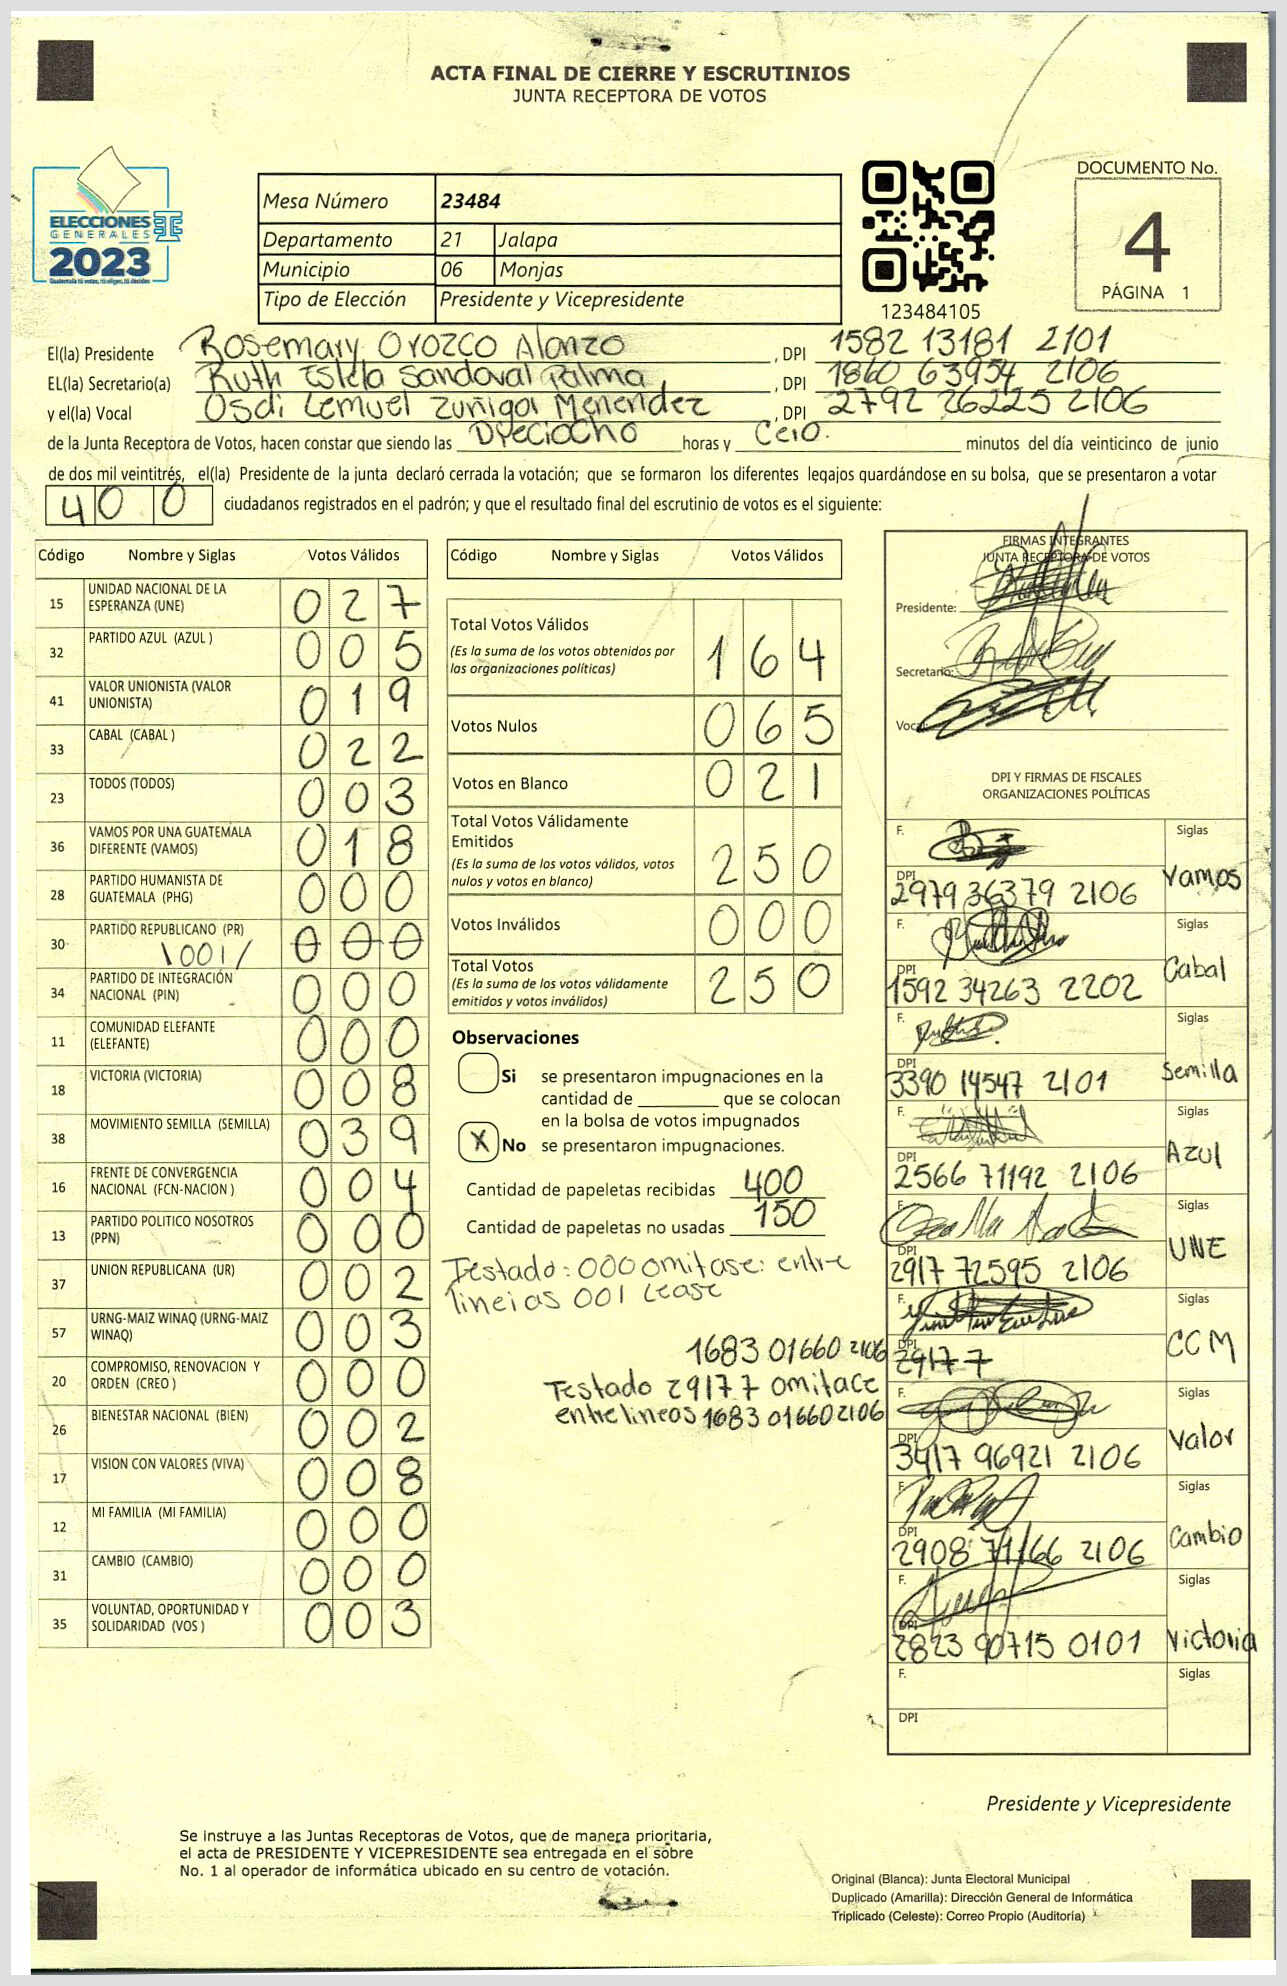 ACTA FINAL DE CIERRE Y ESCRUTINIOS
JUNTA RECEPTORA DE VOTOS
ELECCIONES
GENERALES
2023
Guatemala tú votas, tú eliges, tú decides
Mesa Número 23484
Departamento 21 Jalapa
Municipio 06 Monjas
Tipo de Elección Presidente y Vicepresidente
123484105
DOCUMENTO No.
4
PÁGINA 1
El(la) Presidente Rosemary Orozco Alonzo , DPI 1582 13181 2101
EL(la) Secretario(a) Ruth Estela Sandoval Palma , DPI 1860 63954 2106
y el(la) Vocal Osdi Lemuel Zuñiga Menendez , DPI 2792 26225 2106
de la Junta Receptora de Votos, hacen constar que siendo las Dyeciocho horas y Ceio. minutos del día veinticinco de junio
de dos mil veintitrés, el(la) Presidente de la junta declaró cerrada la votación; que se formaron los diferentes legajos guardándose en su bolsa, que se presentaron a votar
400 ciudadanos registrados en el padrón; y que el resultado final del escrutinio de votos es el siguiente:
Código Nombre y Siglas Votos Válidos
15 UNIDAD NACIONAL DE LA
ESPERANZA (UNE) 027
32 PARTIDO AZUL (AZUL ) 005
41 VALOR UNIONISTA (VALOR
UNIONISTA) 019
33 CABAL (CABAL ) 022
23 TODOS (TODOS) 003
36 VAMOS POR UNA GUATEMALA
DIFERENTE (VAMOS) 018
28 PARTIDO HUMANISTA DE
GUATEMALA (PHG) 000
30 PARTIDO REPUBLICANO (PR) 000
\001/
34 PARTIDO DE INTEGRACIÓN
NACIONAL (PIN) 000
11 COMUNIDAD ELEFANTE
(ELEFANTE) 000
18 VICTORIA (VICTORIA) 008
38 MOVIMIENTO SEMILLA (SEMILLA) 039
16 FRENTE DE CONVERGENCIA
NACIONAL (FCN-NACION ) 004
13 PARTIDO POLITICO NOSOTROS
(PPN) 000
37 UNION REPUBLICANA (UR) 002
57 URNG-MAIZ WINAQ (URNG-MAIZ
WINAQ) 003
20 COMPROMISO, RENOVACION Y
ORDEN (CREO ) 000
26 BIENESTAR NACIONAL (BIEN) 002
17 VISION CON VALORES (VIVA) 008
12 MI FAMILIA (MI FAMILIA) 000
31 CAMBIO (CAMBIO) 000
35 VOLUNTAD, OPORTUNIDAD Y
SOLIDARIDAD (VOS ) 003
Código Nombre y Siglas Votos Válidos
Total Votos Válidos
(Es la suma de los votos obtenidos por
las organizaciones políticas) 164
Votos Nulos 065
Votos en Blanco 021
Total Votos Válidamente
Emitidos
(Es la suma de los votos válidos, votos
nulos y votos en blanco) 250
Votos Inválidos 000
Total Votos
(Es la suma de los votos válidamente
emitidos y votos inválidos) 250
Observaciones
Si se presentaron impugnaciones en la
cantidad de ________ que se colocan
en la bolsa de votos impugnados
X No se presentaron impugnaciones.
Cantidad de papeletas recibidas 400
Cantidad de papeletas no usadas 150
Testado: 000 omitase: entre
lineias 001 Lease
1683 01660 2106
Testado 2917 7 omitace
entrelineos 1683 01660 2106
FIRMAS INTEGRANTES
JUNTA RECEPTORA DE VOTOS
Presidente:
Secretario:
Vocal:
DPI Y FIRMAS DE FISCALES
ORGANIZACIONES POLÍTICAS
F. Siglas
DPI Vamos
2979 36379 2106
F. Siglas
DPI Cabal
1592 34263 2202
F. Siglas
DPI Semilla
3390 14547 2101
F. Siglas
DPI Azul
2566 71192 2106
F. Siglas
DPI UNE
2917 72595 2106
F. Siglas
DPI CCM
2917 7
F. Siglas
DPI Valor
3417 96921 2106
F. Siglas
DPI Cambio
2908 71166 2106
F. Siglas
DPI Victoria
2823 90715 0101
F. Siglas
DPI
Presidente y Vicepresidente
Se instruye a las Juntas Receptoras de Votos, que de manera prioritaria,
el acta de PRESIDENTE Y VICEPRESIDENTE sea entregada en el sobre
No. 1 al operador de informática ubicado en su centro de votación.
Original (Blanca): Junta Electoral Municipal
Duplicado (Amarilla): Dirección General de Informática
Triplicado (Celeste): Correo Propio (Auditoría)